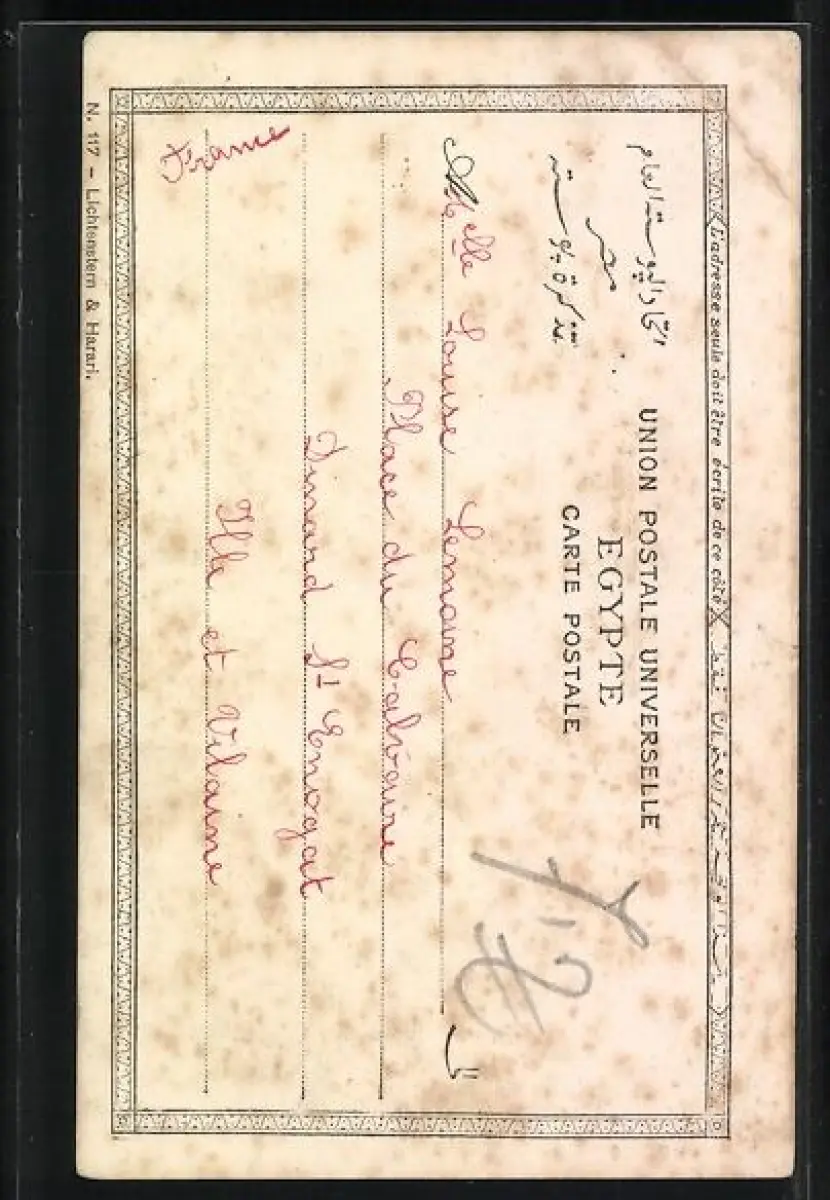 L'adresse seule doit être écrite de ce côté
اتحاد البوستة العام
UNION POSTALE UNIVERSELLE
مصر
EGYPTE
تذكرة بوستة
CARTE POSTALE
الى
Melle Louise Lemoine
Place du Calvaire
Dinard St Enogat
Ille et Vilaine
France
N. 117 - Lichtenstern & Harari.